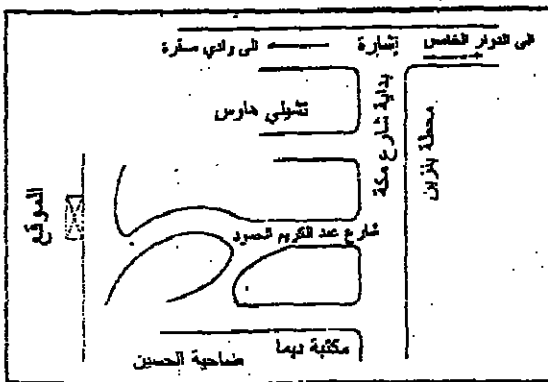 الى الدوار الخامس
إشارة
الى وادي صقرة
بداية شارع مكة
محطة بنزين
تشيلي هاوس
الموقع
شارع عبد الكريم الحمود
مكتبة ديما
ضاحية الحسين